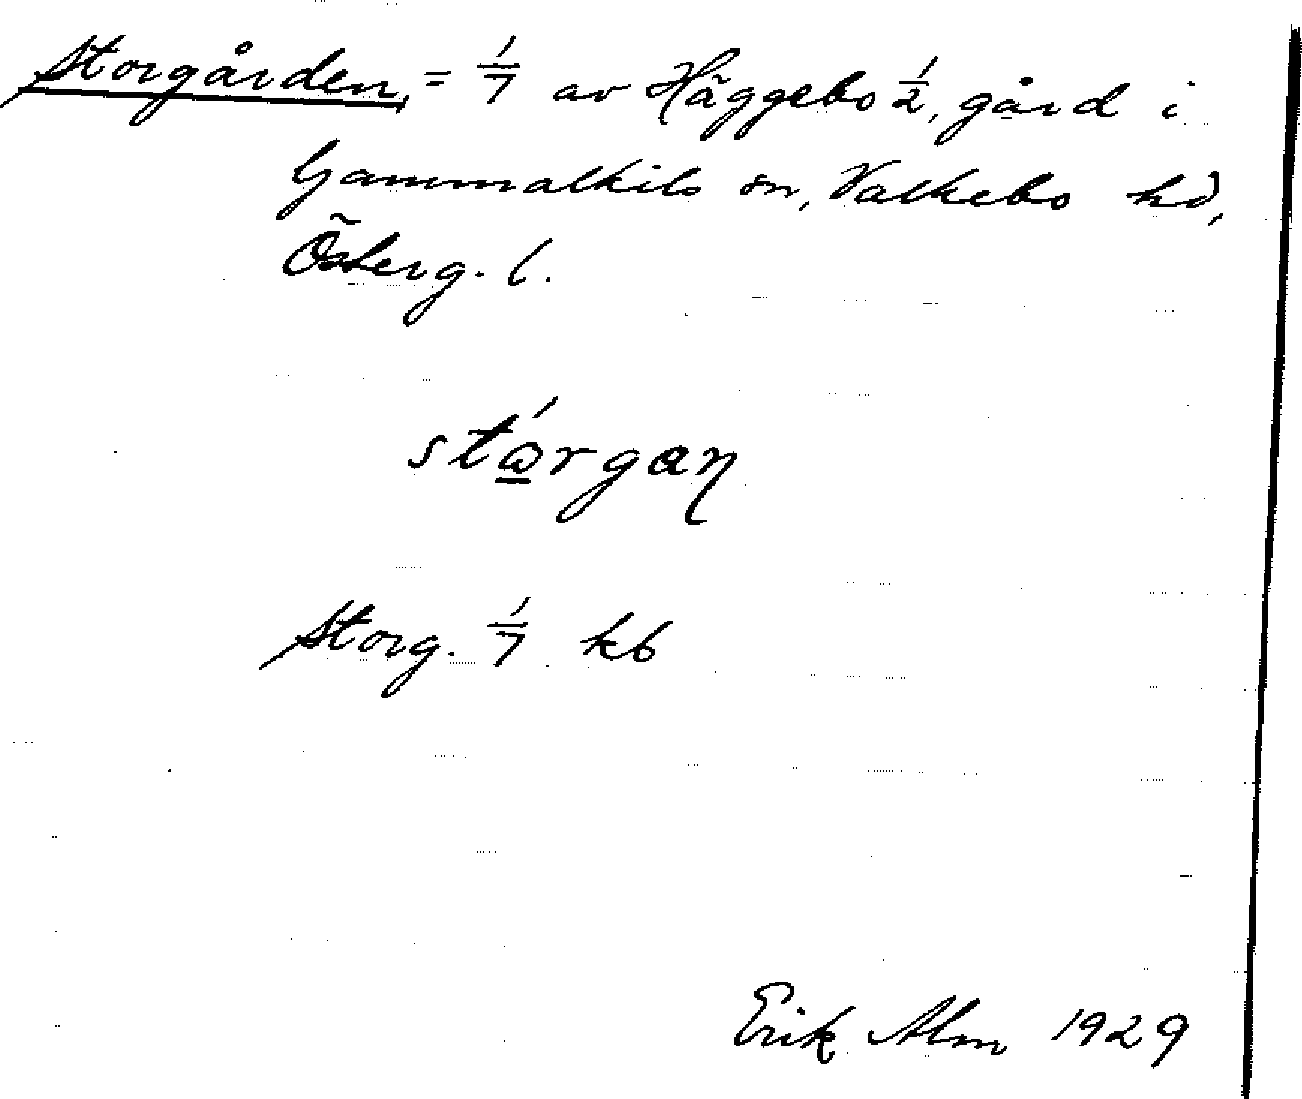 Storgården, = 1/7 av Häggebo 1/2, gård i
Gammalkils sn, Valkebo hd,
Österg. l.
stɷ́rgaɳ
Storg. 1/7 kb
Erik Alm 1929